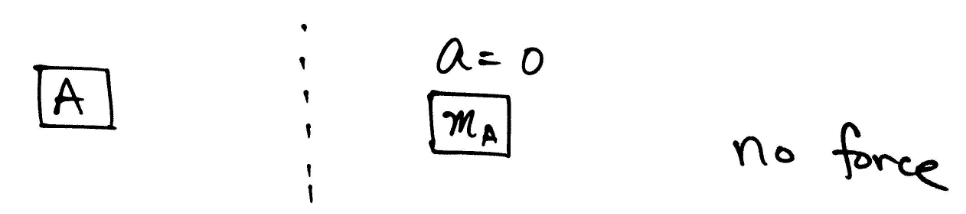 A
a = 0
m_A
no force